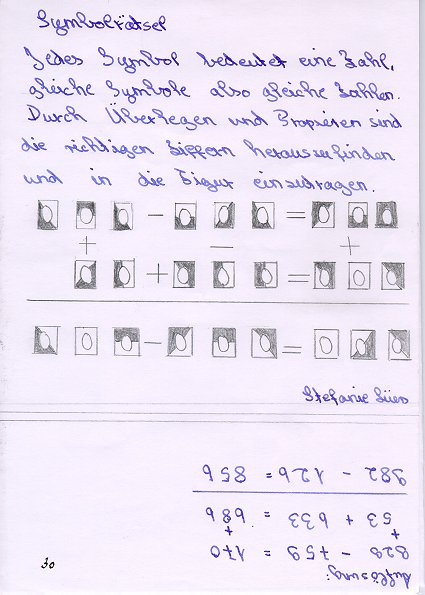 Symbolrätsel
Jedes Symbol bedeutet eine Zahl,
gleiche Symbole also gleiche Zahlen.
Durch Überlegen und Propieren sind
die richtigen Ziffern herauszufinden
und in die Figur einzutragen.
− =
+ − +
+ =
− =
Stefanie
Auflösung:
929 - 759 = 170
+ +
53 + 633 = 686
982 - 126 = 856
30